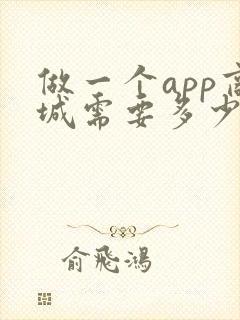 做一个app商
城需要多少
俞飛鴻